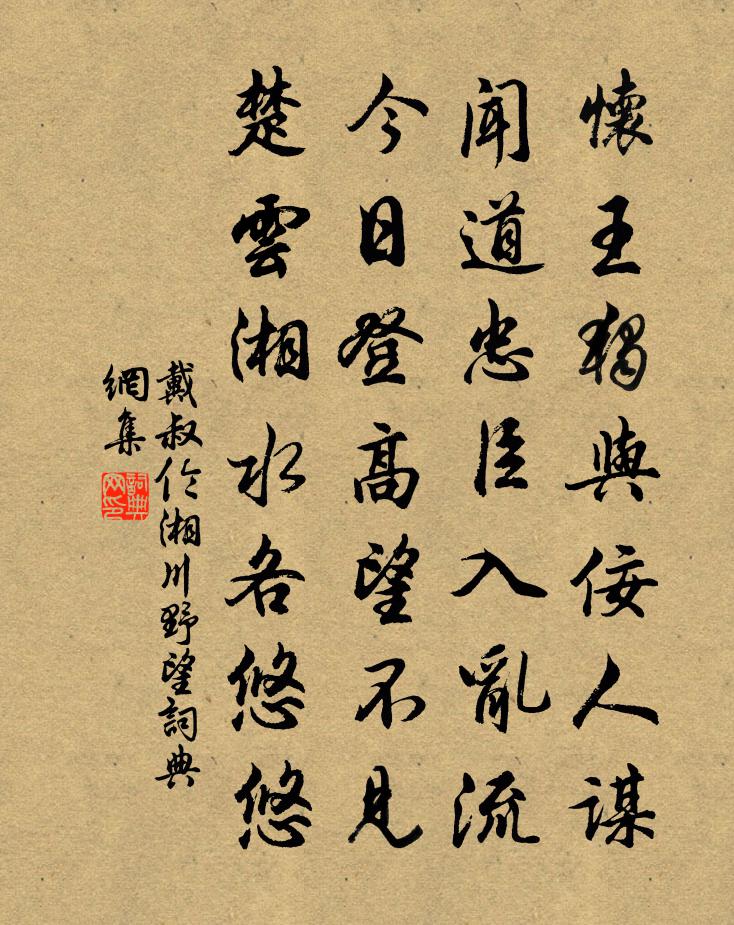 懷王獨與佞人謀
聞道忠臣入亂流
今日登高望不見
楚雲湘水各悠悠
戴叔伦湘川野望詞典
網集
詞典
网印